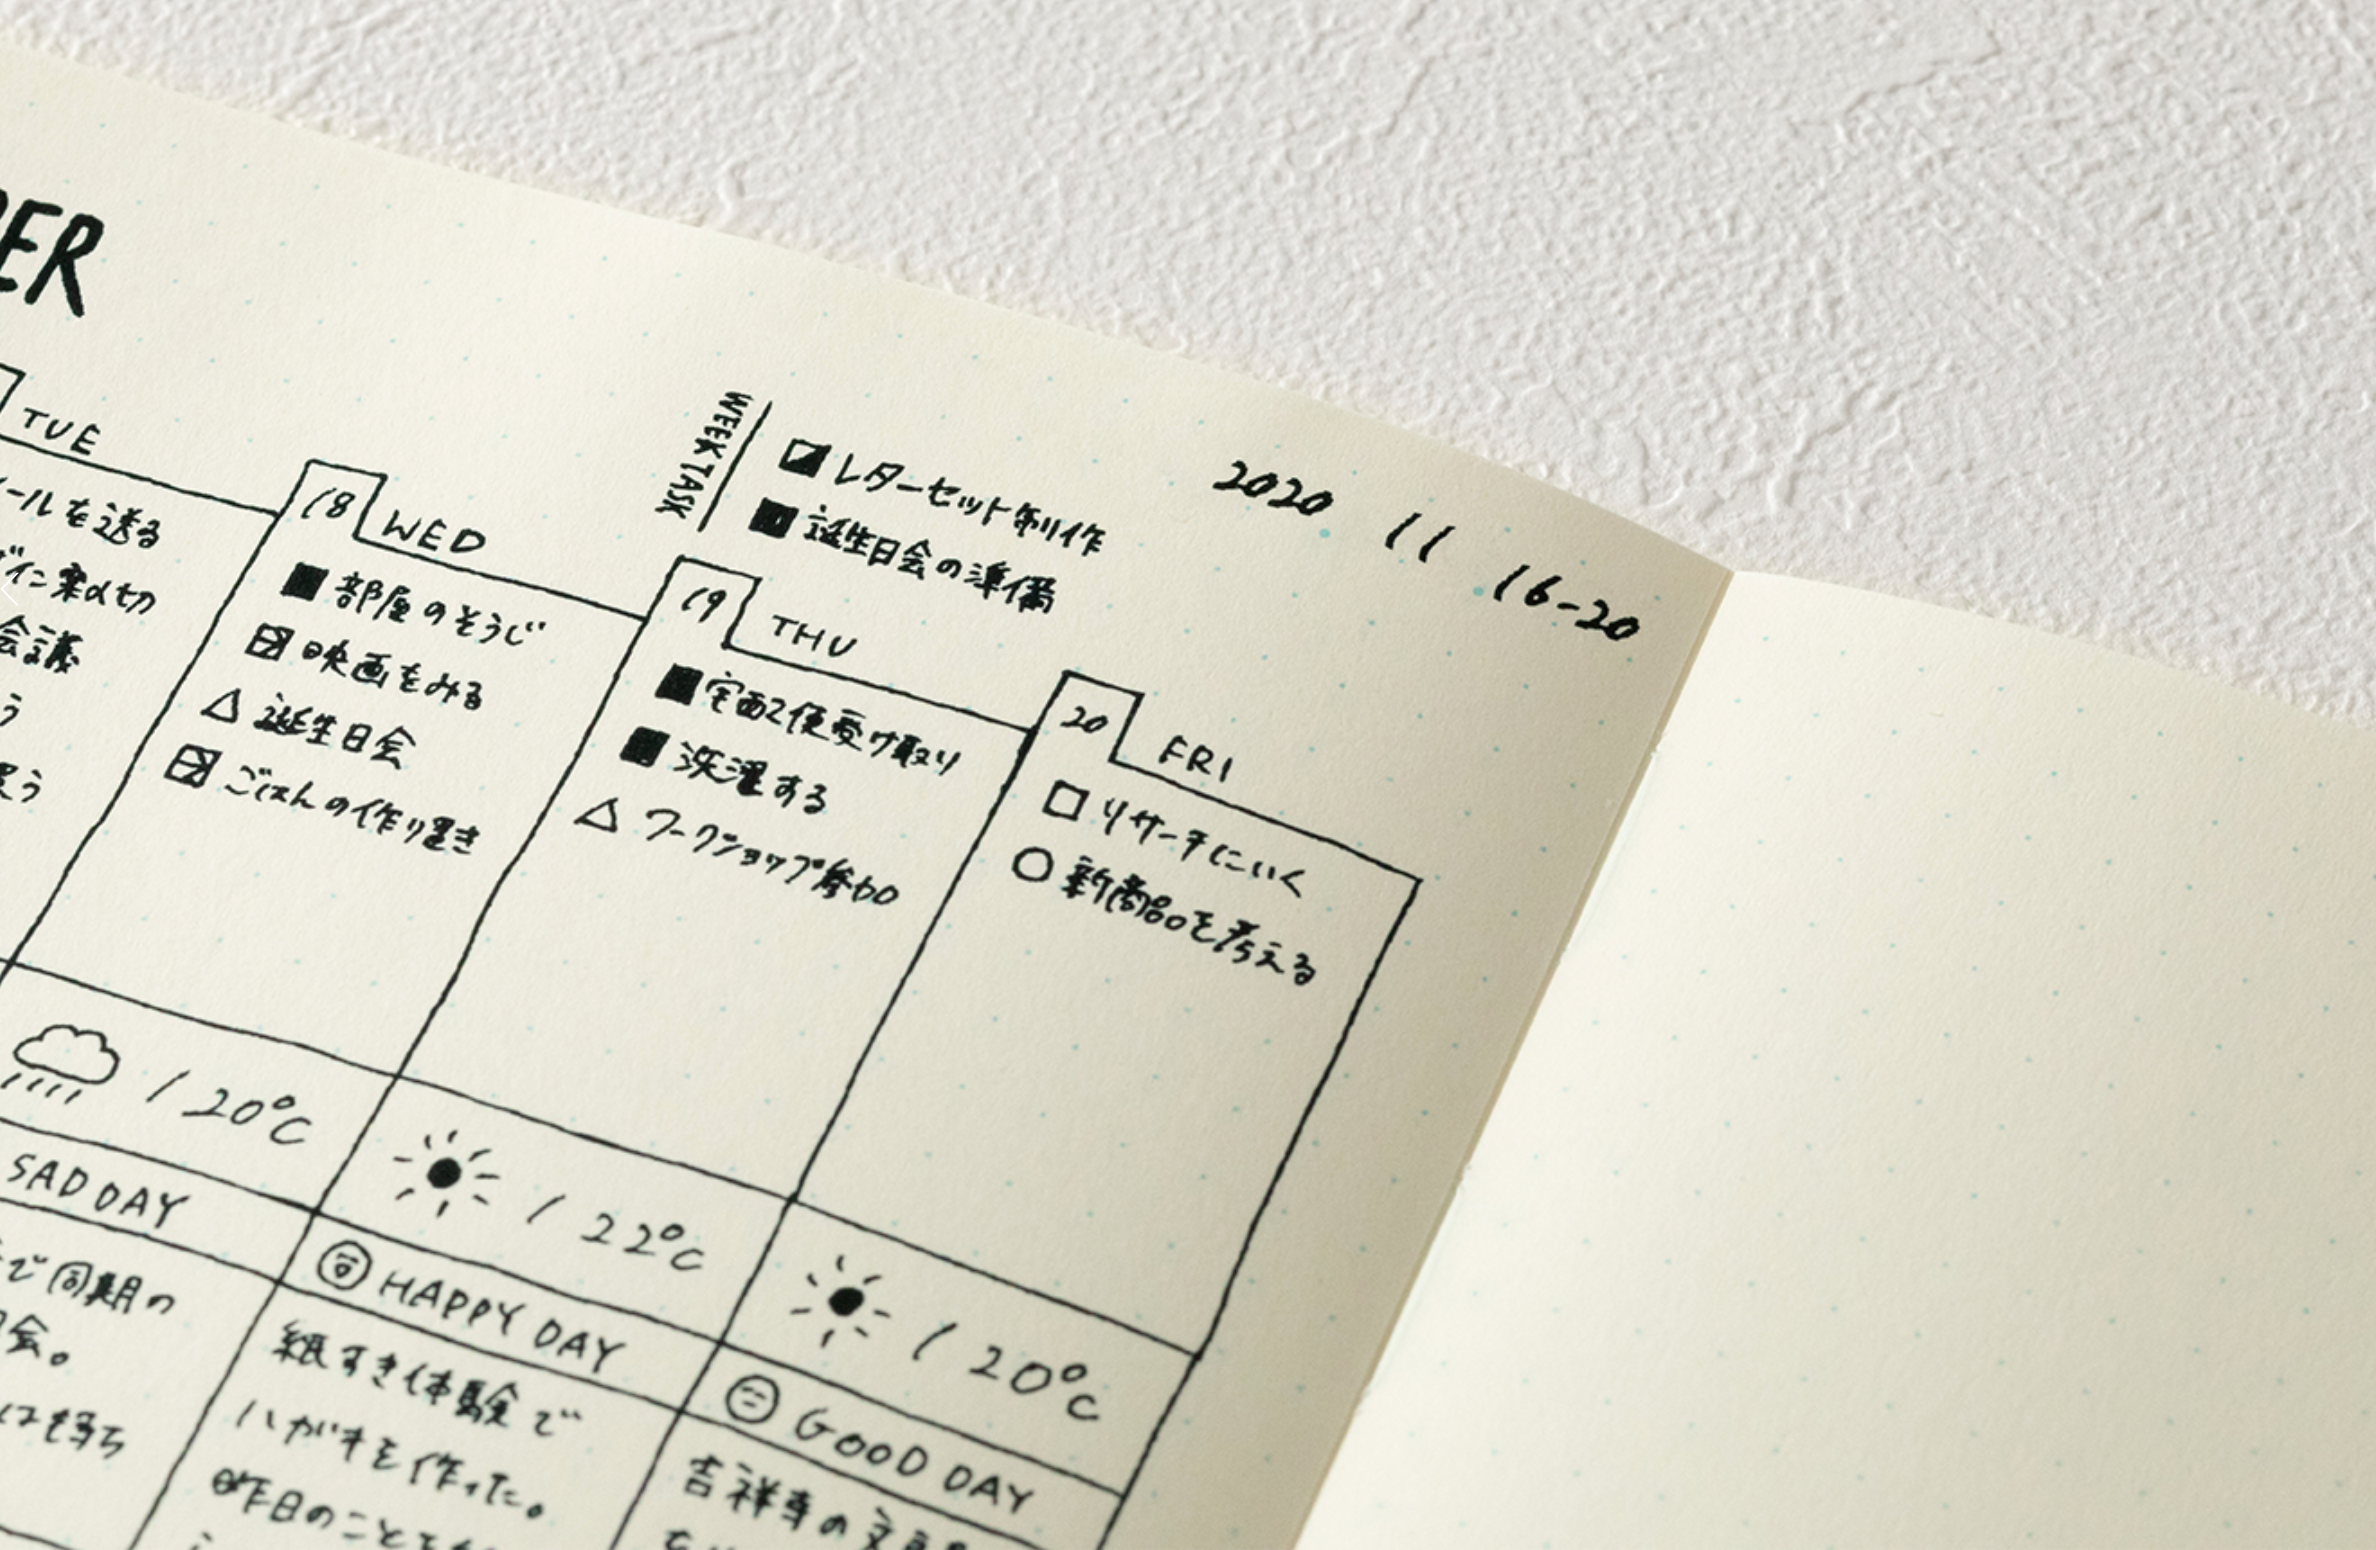 BER
2020 11 16-20
WEEK TASK
レターセット制作
誕生日会の準備
TUE
ールを送る
会議
う
買う
18 WED
部屋のそうじ
映画をみる
誕生日会
ごはんの作り置き
19 THU
宅配便受け取り
洗濯する
ワークショップ参加
20 FRI
リサーチにいく
新商品を考える
/ 20°C
SAD DAY
で同期の
会。
/ 22°C
HAPPY DAY
紙すき体験で
ハガキを作った。
昨日のことを
/ 20°C
GOOD DAY
吉祥寺の文具